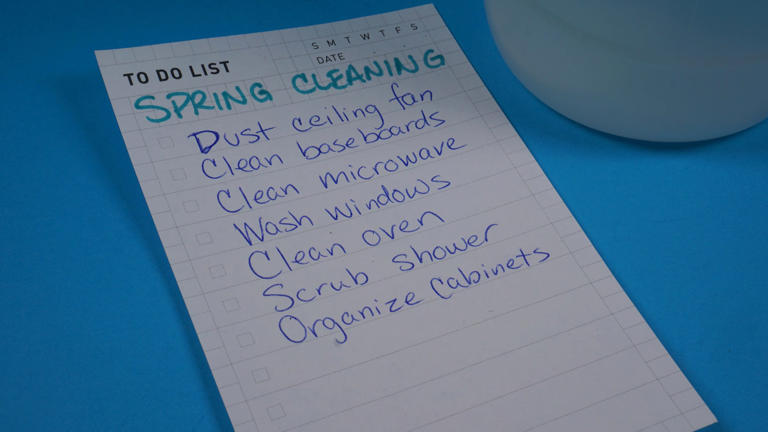 S M T W T F S
TO DO LIST
DATE
SPRING CLEANING
Dust ceiling fan
Clean baseboards
Clean microwave
Wash windows
Clean oven
Scrub shower
Organize Cabinets